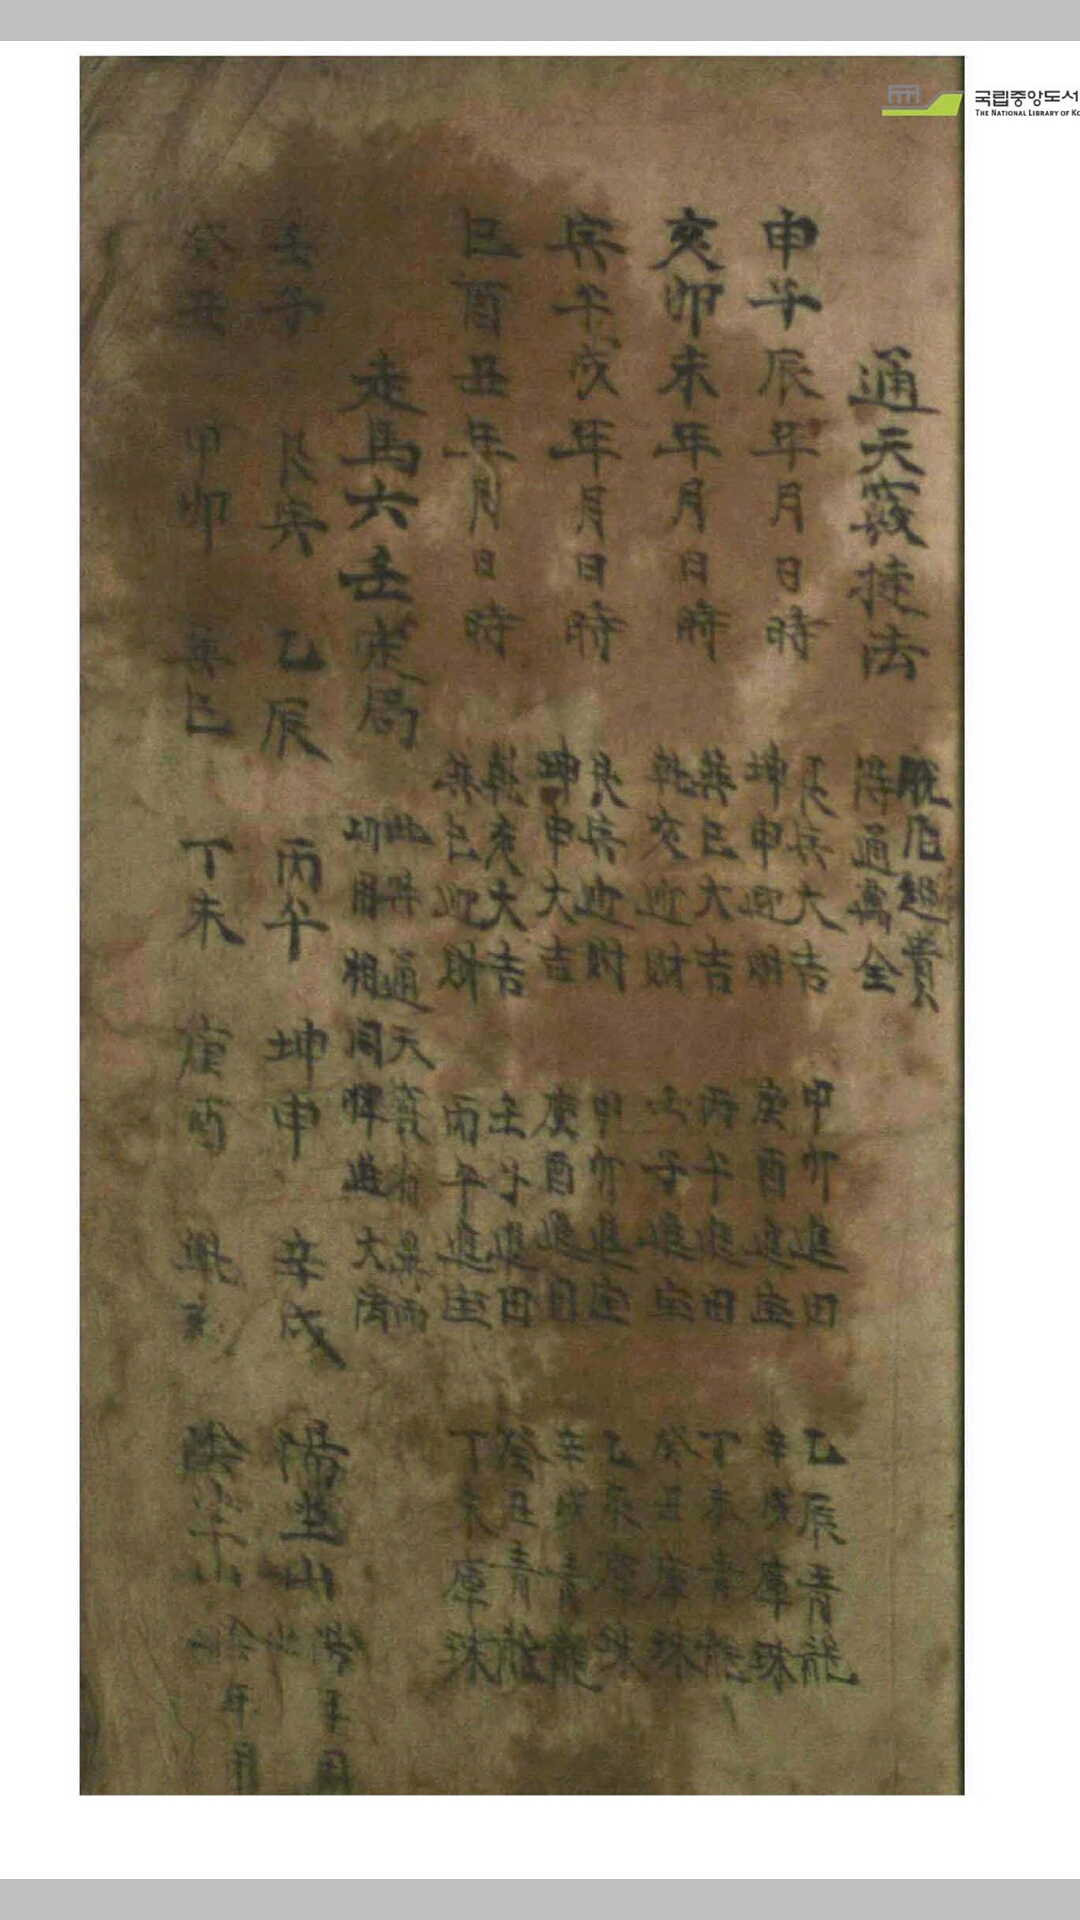 국립중앙도서
THE NATIONAL LIBRARY OF KO
通天竅捷法
脫厄超貴
得通萬全
申子辰年月日時
艮寅大吉 甲卯進田 乙辰青龍
坤申迎財 庚酉進宝 辛戌庫珠
亥卯未年月日時
巽巳大吉 丙午進田 丁未青龍
乾亥迎財 壬子進宝 癸丑庫珠
寅午戌年月日時
艮寅迎財 甲卯進宝 乙辰庫珠
坤申大吉 庚酉進田 辛戌青龍
巳酉丑年月日時
乾亥大吉 壬子進田 癸丑青龍
巽巳迎財 丙午進宝 丁未庫珠
走馬六壬定局
此 通天竅
功用相同 進大
壬子 艮寅 乙辰 丙午 坤申 辛戌 陽 山
癸丑 甲卯 巽巳 丁未 庚酉 乾亥 陰 山